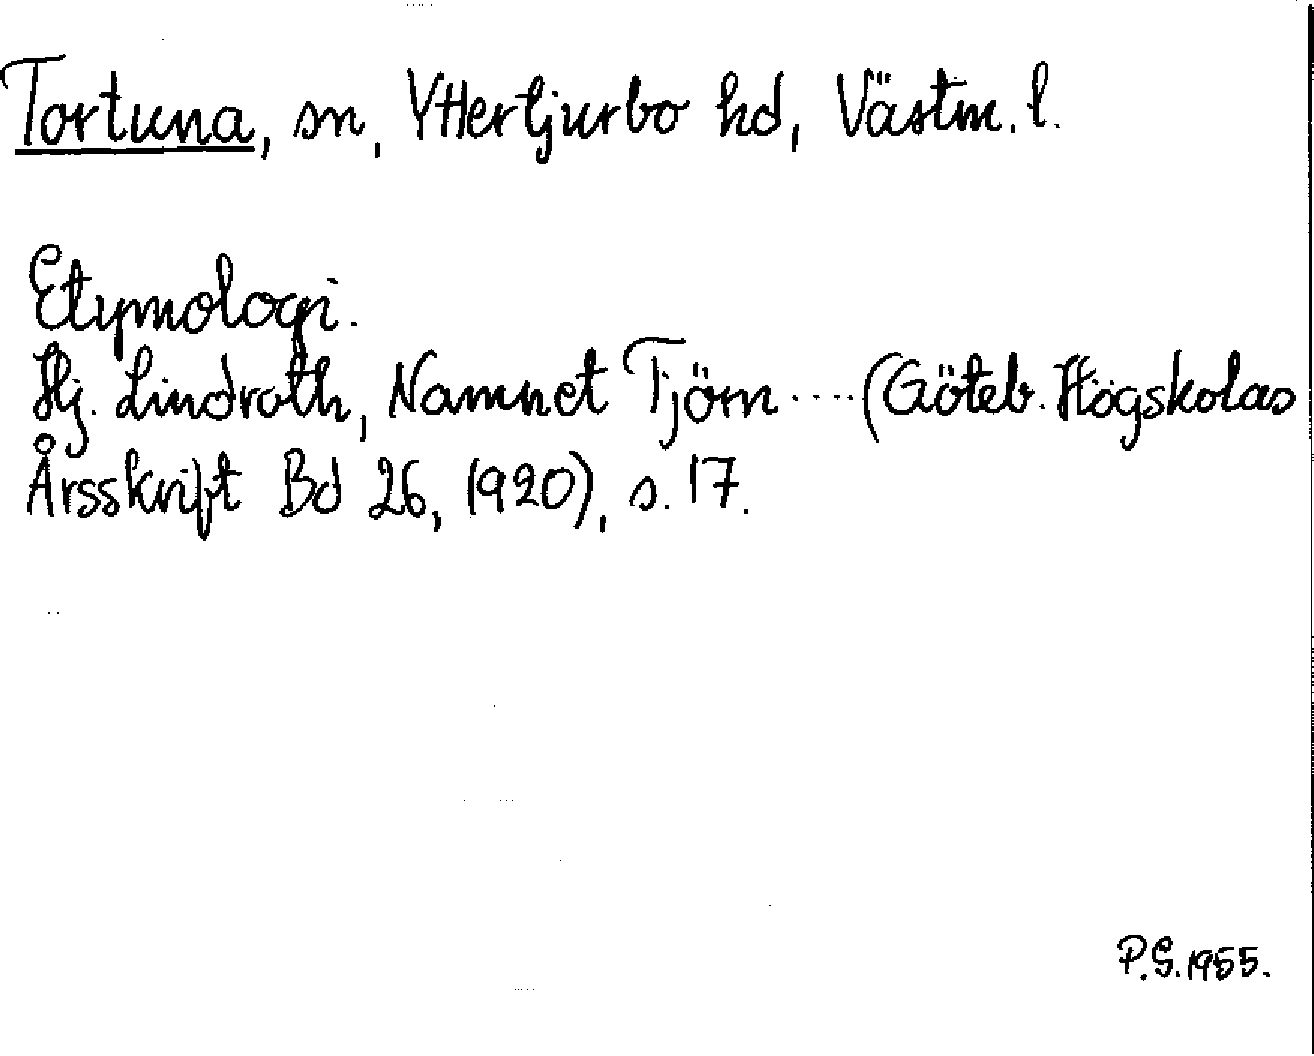 Tortuna, sn, Yttertjurbo hd, Västm. l.
Etymologi.
Hj. Lindroth, Namnet Tjörn ..... (Göteb. Högskolas
Årsskrift Bd 26, 1920), s. 17.
P.S. 1955.